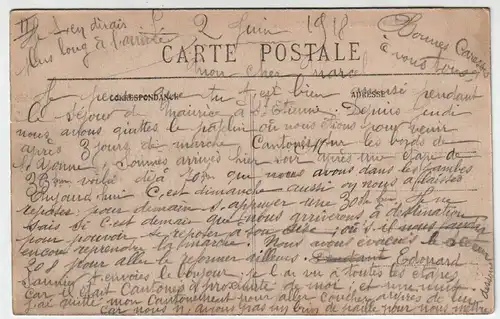 II Je t'en dirais plus long à l'arrivée
2 Juin 1918
Bonnes Caresses à vous tous
CARTE POSTALE
CORRESPONDANCE
ADRESSE
Mon cher Marcel
Je pense que tu t'est bien amusé pendant
le séjour de Mairie à St Etienne. Depuis jeudi
nous avons quittés le patelin où nous étions pour venir
après 3 jours de marche Cantonner sur les bords de
l'Yonne. Sommes arrivés hier soir après une étape de
23 km voilà déjà 70 km que nous avons dans les jambes
Aujourd'hui C'est dimanche aussi on nous a laissés
reposer pour demain s'appuyer une 30ne km. Je ne
sais si c'est demain que nous arriverons à destination
pour pouvoir se reposer à son aise, où s'il nous faudra
encore reprendre la marche. Nous avons évacués le secteur
308 pour aller le reformer ailleurs. Edouard
Jannin t'envoies le bonjour, je l'ai vu à toutes les étapes
car il était Cantonés à proximité de moi, et une
j'ai quitté mon Cantonnement pour aller coucher auprès de lui
car nous n'avons pas un brin de paille pour nous mettre
dessous